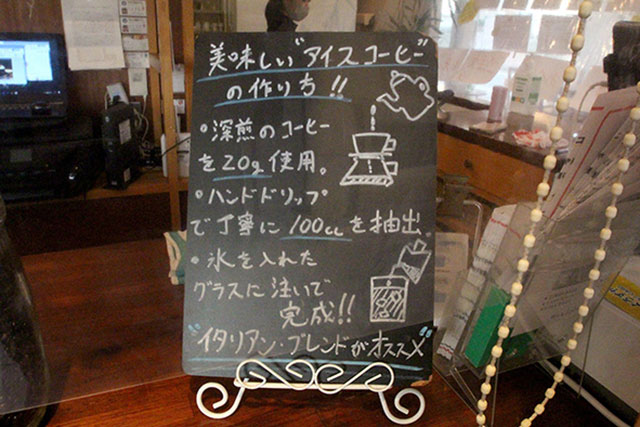 美味しい"アイスコーヒー"
の作り方!!
・深煎のコーヒー
を20g使用。
・ハンドドリップ
で丁寧に100ccを抽出
・氷を入れた
グラスに注いで
完成!!
"イタリアン・ブレンドがオススメ"